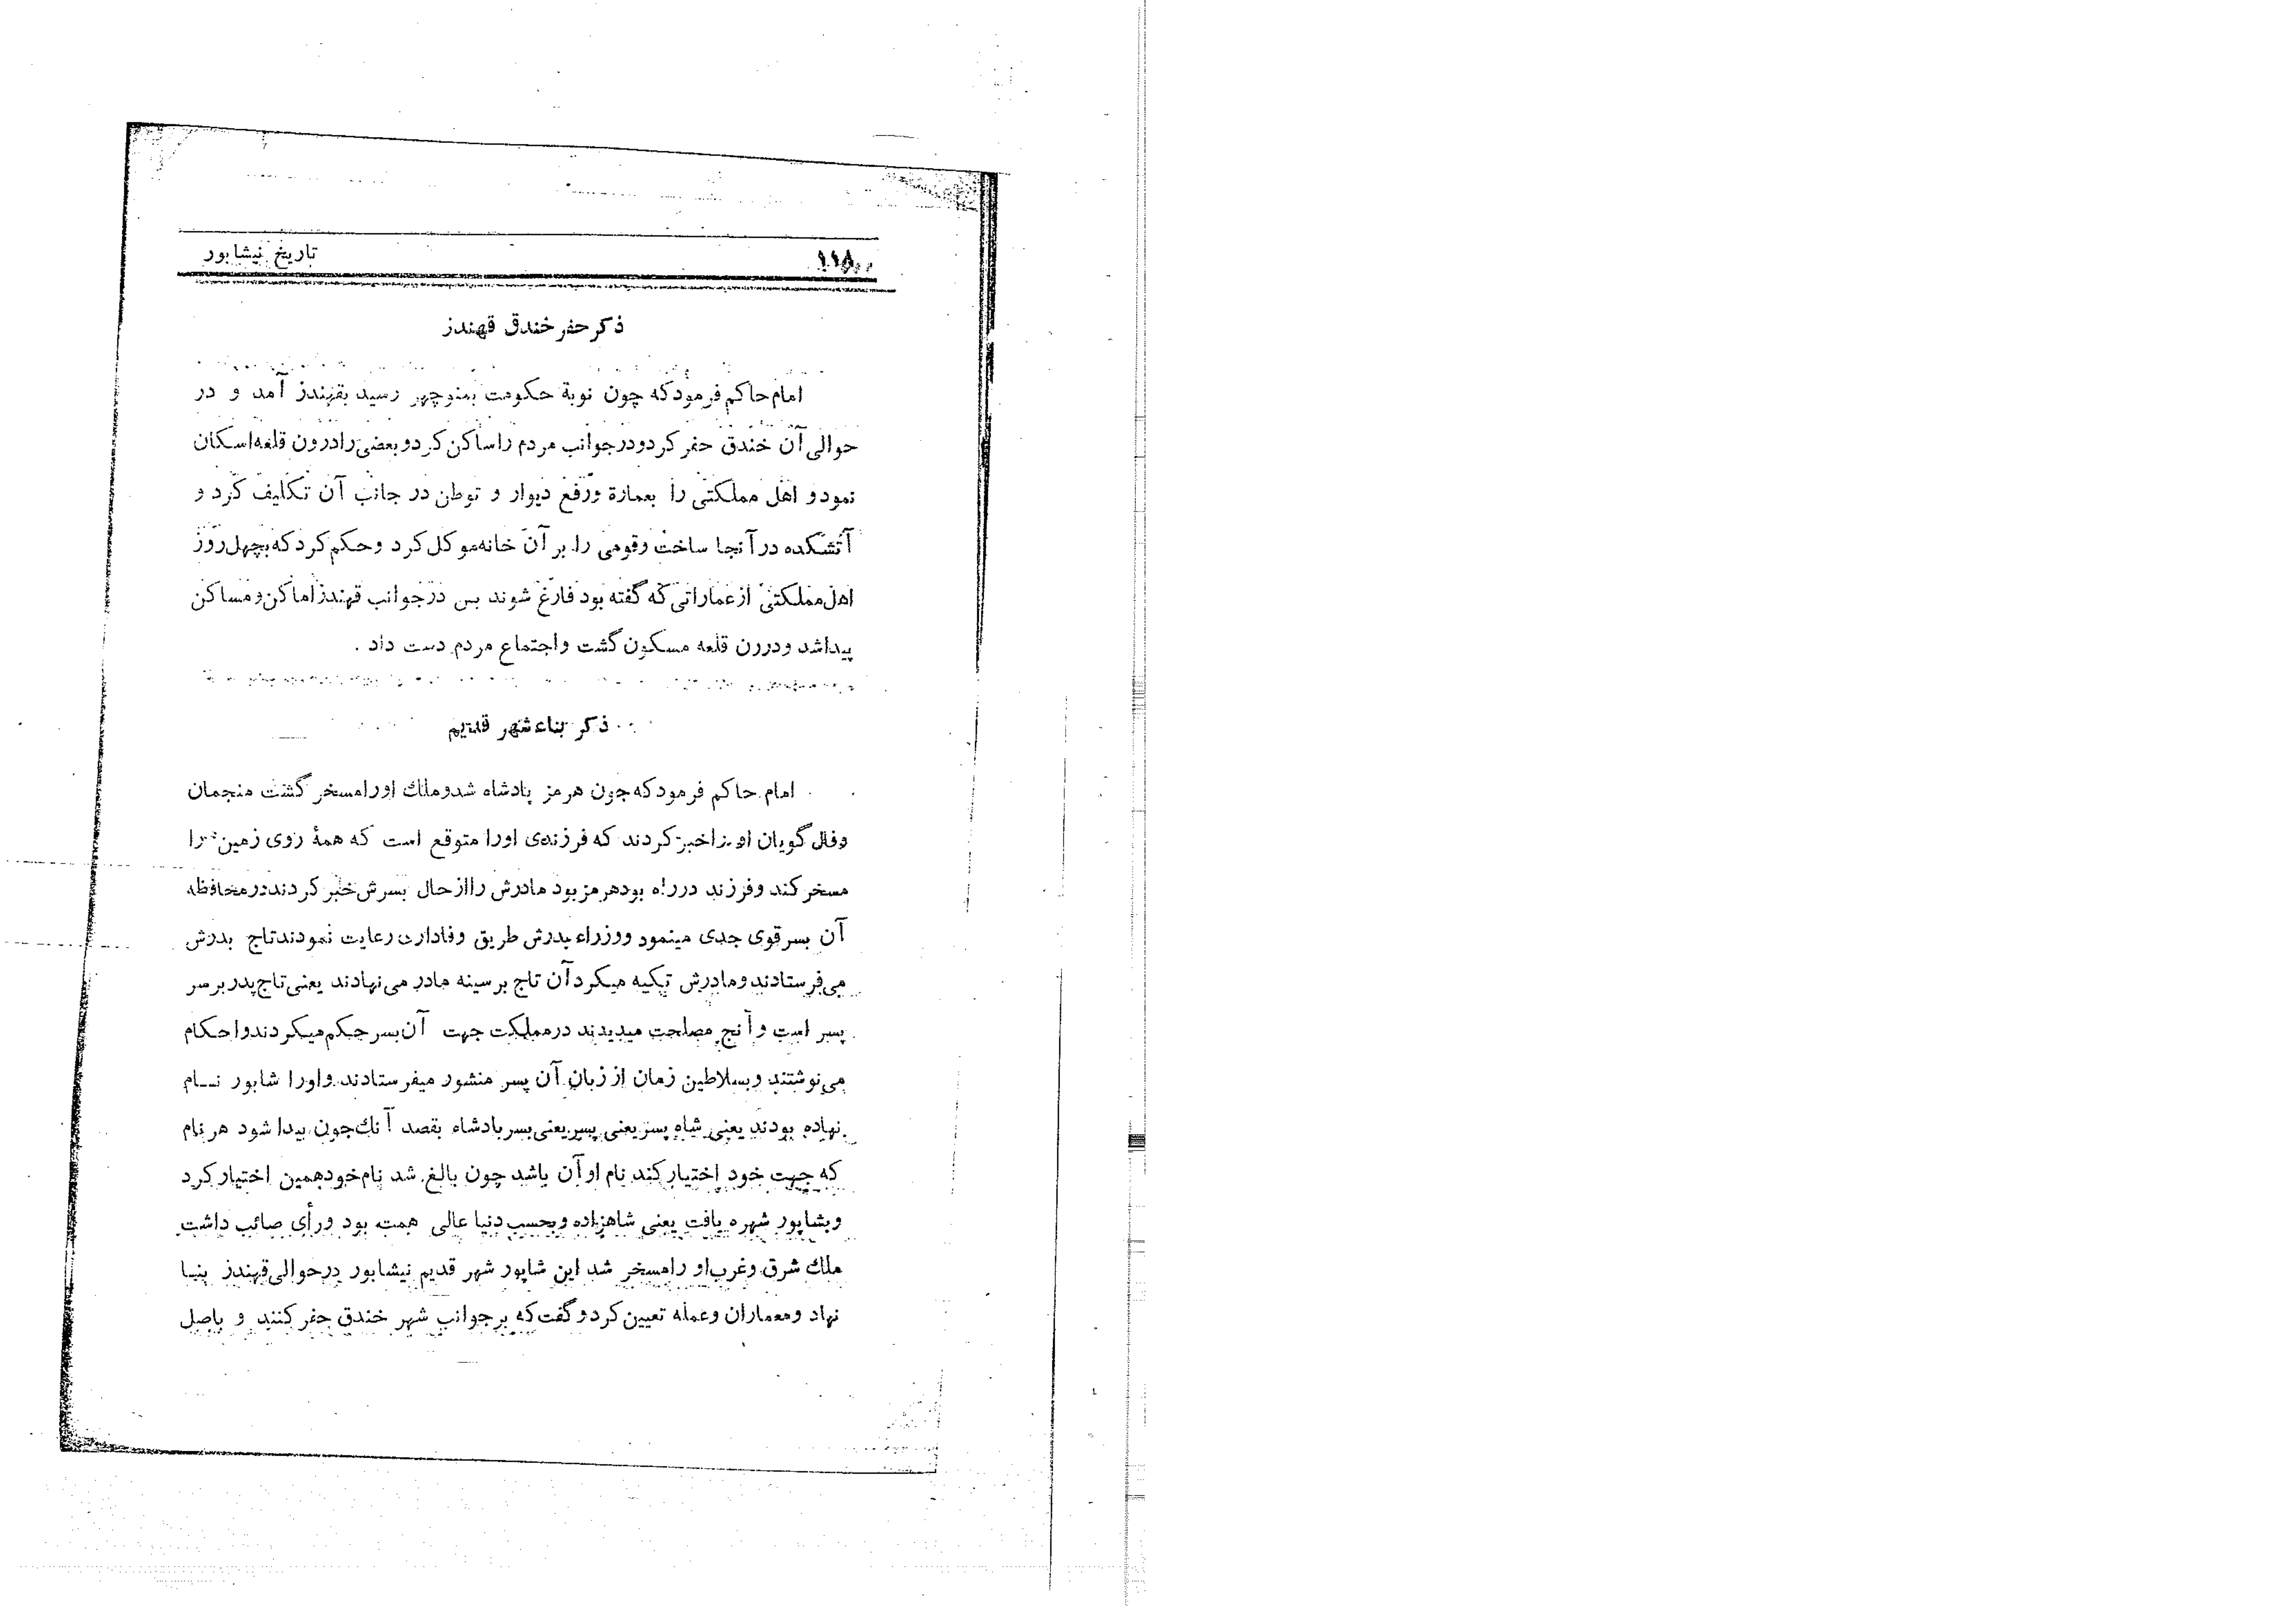 ۱۱۸
تاریخ نیشابور
ذکر حفر خندق قهندز
امام حاکم فرمود که چون نوبة حکومت بمنوچهر رسید بقهندز آمد و در
حوالی آن خندق حفر کرد و در جوانب مردم را ساکن کرد و بعضی را درون قلعه اسکان
نمود و اهل مملکتی را بعمارة و رفع دیوار و توطن در جانب آن تکلیف کرد و
آتشکده در آنجا ساخت و قومی را بر آن خانه موکل کرد و حکم کرد که بچهل روز
اهل مملکتی از عماراتی که گفته بود فارغ شوند بس در جوانب قهندز اماکن و مساکن
پیدا شد و درون قلعه مسکون گشت و اجتماع مردم دست داد .
ذکر بناء شهر قدیم
امام حاکم فرمود که چون هرمز پادشاه شد و ملك او را مسخر گشت منجمان
و فال گویان او را خبر کردند که فرزندی او را متوقع است که همهٔ روی زمین را
مسخر کند و فرزند در راه بود هرمز بود مادرش را از حال بسرش خبر کردند در محافظه
آن بسر قوی جدی مینمود و وزراء پدرش طریق وفاداری رعایت نمودند تاج بدرش
می‌فرستادند و مادرش تکیه میکرد آن تاج بر سینه مادر می‌نهادند یعنی تاج پدر بر سر
پسر است و آنج مصلحت میدیدند در مملکت جهت آن بسر حکم میکردند و احکام
می‌نوشتند و بسلاطین زمان از زبان آن پسر منشور میفرستادند و او را شابور نــام
نهاده بودند یعنی شاه پسر یعنی پسر یعنی بسر بادشاه بقصد آنك چون بیدا شود هر نام
که جهت خود اختیار کند نام او آن باشد چون بالغ شد نام خود همین اختیار کرد
و بشاپور شهره یافت یعنی شاهزاده و بحسب دنیا عالی همت بود و رأی صائب داشت
ملك شرق و غرب او را مسخر شد این شاپور شهر قدیم نیشابور در حوالی قهندز بنیا
نهاد و معماران و عمله تعیین کرد و گفت که بر جوانب شهر خندق حفر کنند و باصل